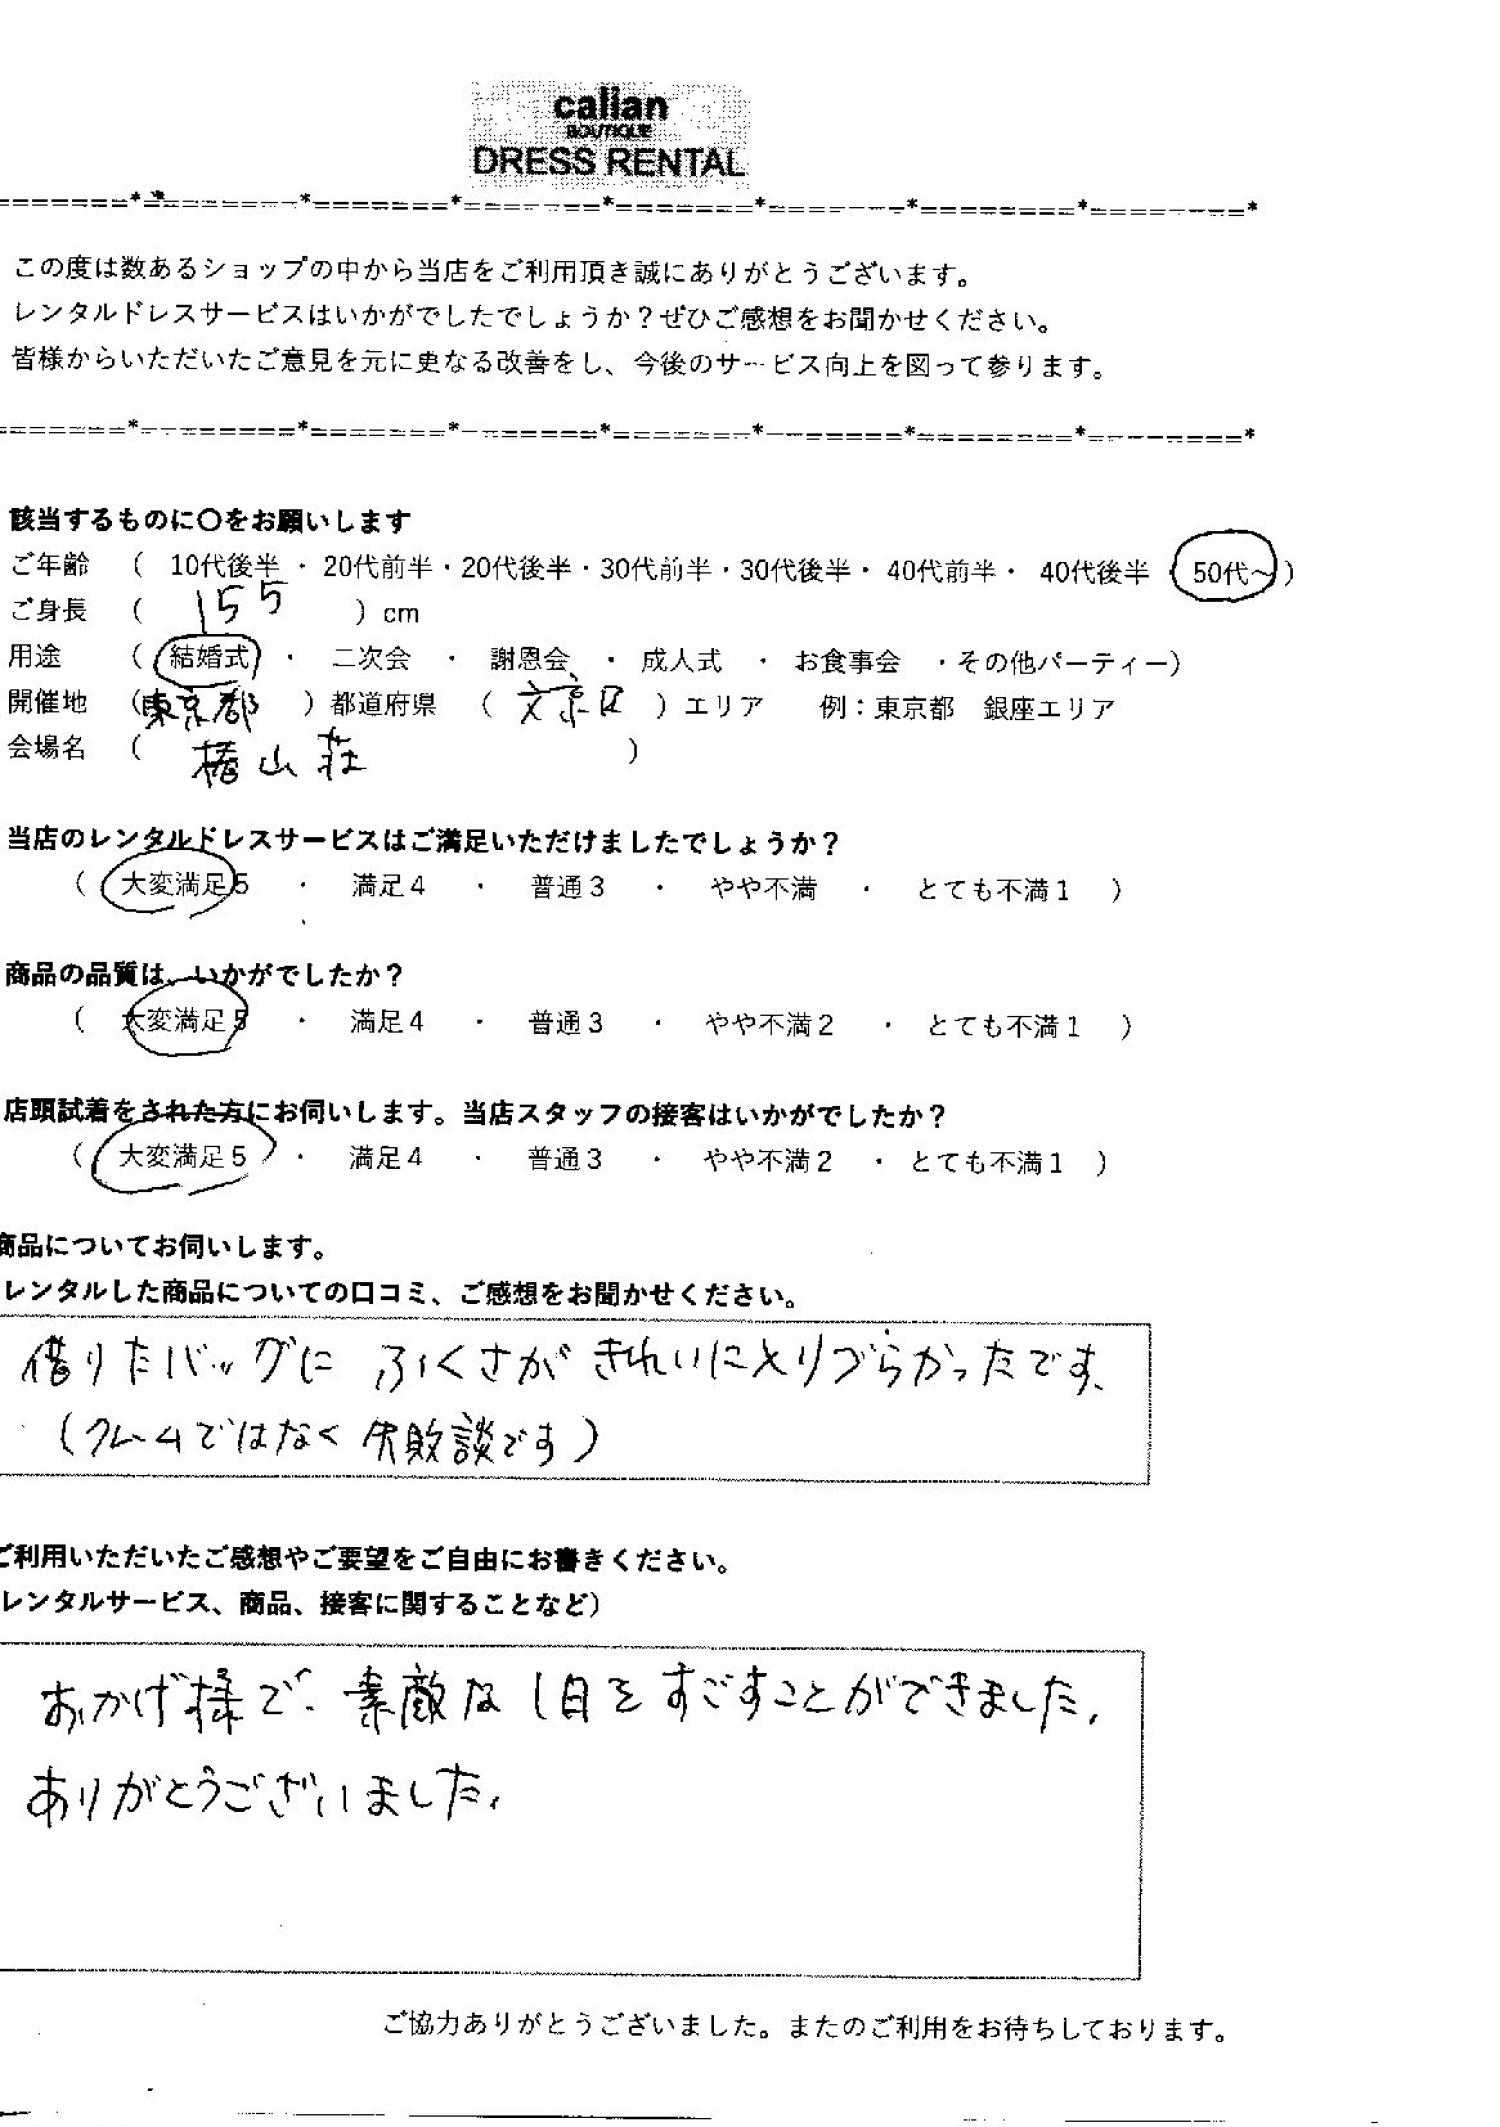 calian
BOUTIQUE
DRESS RENTAL
=======*=========*=======*========*=======*=======*========*========*
この度は数あるショップの中から当店をご利用頂き誠にありがとうございます。
レンタルドレスサービスはいかがでしたでしょうか？ぜひご感想をお聞かせください。
皆様からいただいたご意見を元に更なる改善をし、今後のサービス向上を図って参ります。
=======*=========*=======*========*=======*=======*========*========*
該当するものに〇をお願いします
ご年齢 （ 10代後半 ・ 20代前半・20代後半・30代前半・30代後半・ 40代前半・ 40代後半 ・ 50代～）
ご身長 （ 155 ）cm
用途 （ 結婚式 ・ 二次会 ・ 謝恩会 ・ 成人式 ・ お食事会 ・その他パーティー）
開催地 （東京都 ）都道府県 （ 文京区 ）エリア 例：東京都 銀座エリア
会場名 （ 椿山荘 ）
当店のレンタルドレスサービスはご満足いただけましたでしょうか？
（ 大変満足5 ・ 満足4 ・ 普通3 ・ やや不満 ・ とても不満1 ）
商品の品質は、いかがでしたか？
（ 大変満足5 ・ 満足4 ・ 普通3 ・ やや不満2 ・ とても不満1 ）
店頭試着をされた方にお伺いします。当店スタッフの接客はいかがでしたか？
（ 大変満足5 ・ 満足4 ・ 普通3 ・ やや不満2 ・ とても不満1 ）
商品についてお伺いします。
レンタルした商品についての口コミ、ご感想をお聞かせください。
借りたバッグに ふくさが きれいにとりづらかったです、
（クレームではなく 失敗談です）
ご利用いただいたご感想やご要望をご自由にお書きください。
レンタルサービス、商品、接客に関することなど）
おかげ様で、素敵な1日をすごすことができました。
ありがとうございました。
ご協力ありがとうございました。またのご利用をお待ちしております。